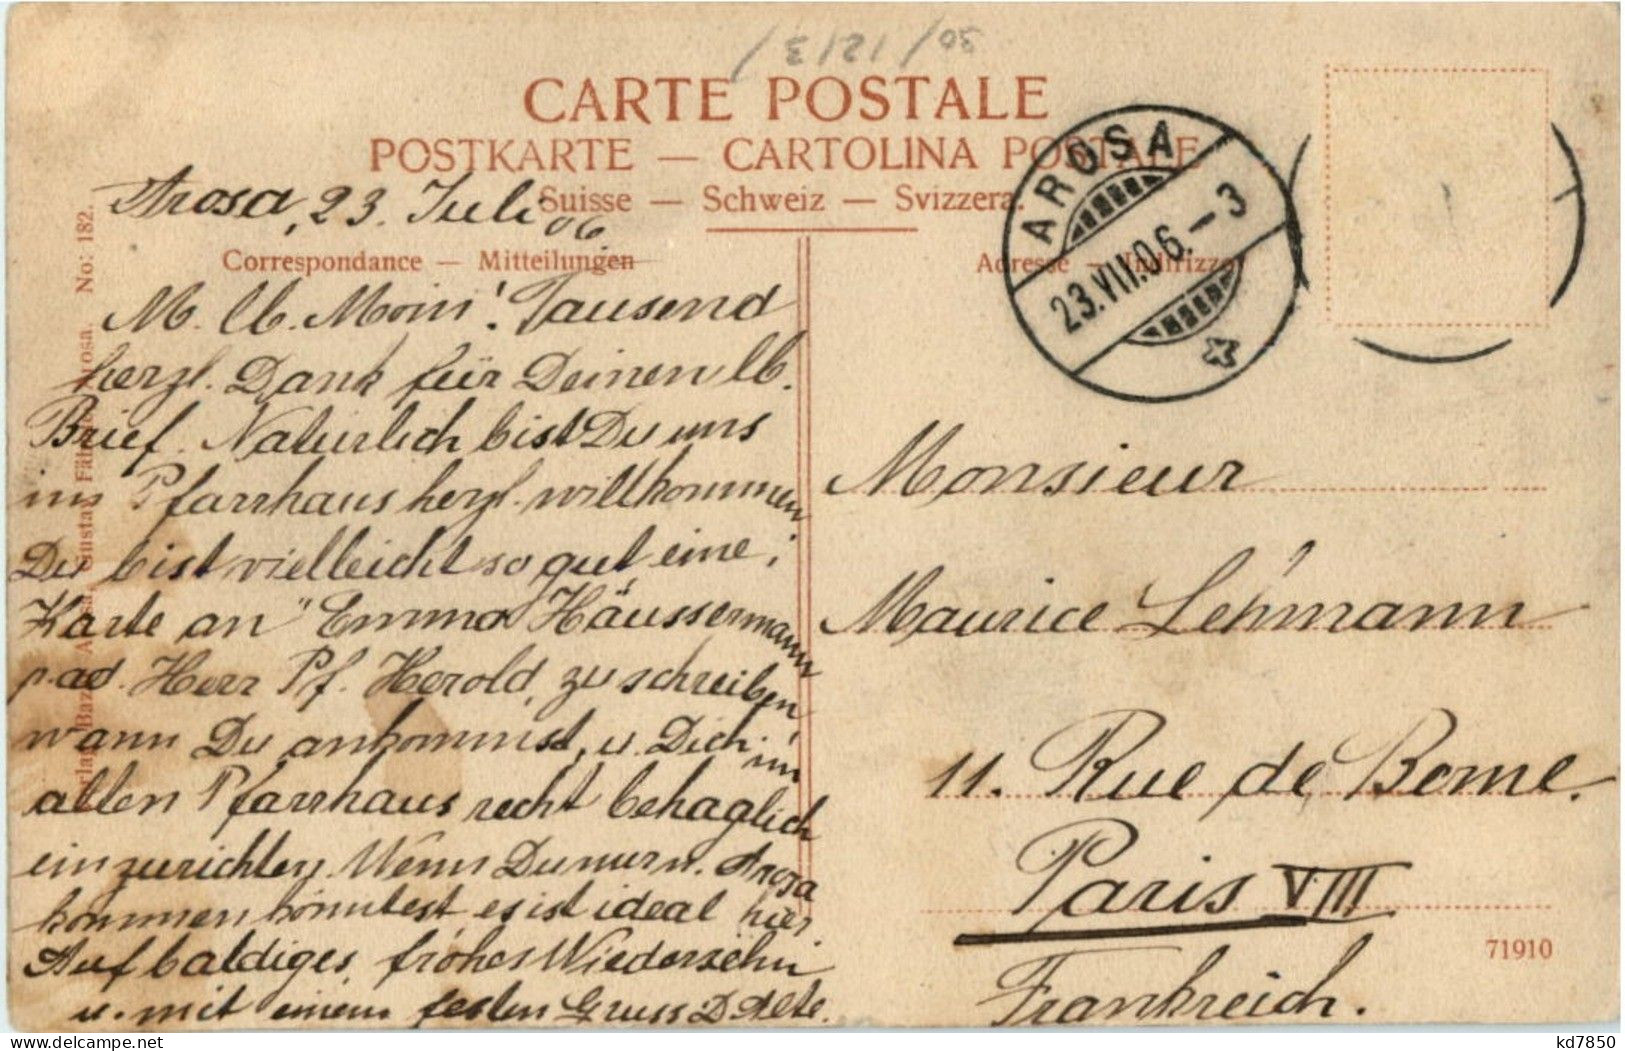 30/1213/
CARTE POSTALE
POSTKARTE — CARTOLINA POSTALE
Suisse — Schweiz — Svizzera.
Arosa, 23. Juli 06
Correspondance — Mitteilungen
Adresse — Indirizzo
AROSA
23.VII.06.-3
No: 182.
M. lb. Moni! Tausend
herzl. Dank für Deinen lb.
Brief. Natürlich bist Du uns
im Pfarrhaus herzl. willkommen
Du bist vielleicht so gut eine
Karte an "Emma Häussermann
p. ad. Herr Pf. Herold, zu schreiben
wann Du ankommst, u. Dich im
alten Pfarrhaus recht behaglich
einzurichten. Wenn Du nur n. Arosa
kommen könntest, es ist ideal hier
Auf baldiges, frohes Wiedersehn
u. mit einem festen Gruss D. Alte.
Monsieur
Maurice Lehmann
11. Rue de Bome.
Paris VIII
Frankreich.
71910
kd7850